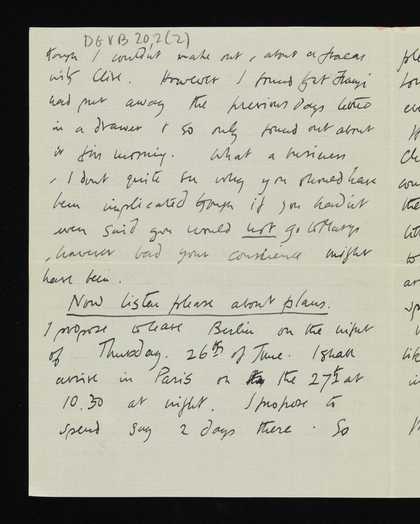 DEVB 20,2(2)
though I couldn't make out, about a fracas
with Clive. However I found that Franzi
had put away the previous days letter
in a drawer & so only found out about
it this morning. What a business
, I dont quite see why you should have
been implicated though if you hadn't
even said you would not go to Marys
, however bad your conscience might
have been.
Now listen please about plans.
I propose to leave Berlin on the night
of Thursday. 26th of June. I shall
arrive in Paris on the 27th at
10.30 at night. I propose to
spend say 2 days there. So